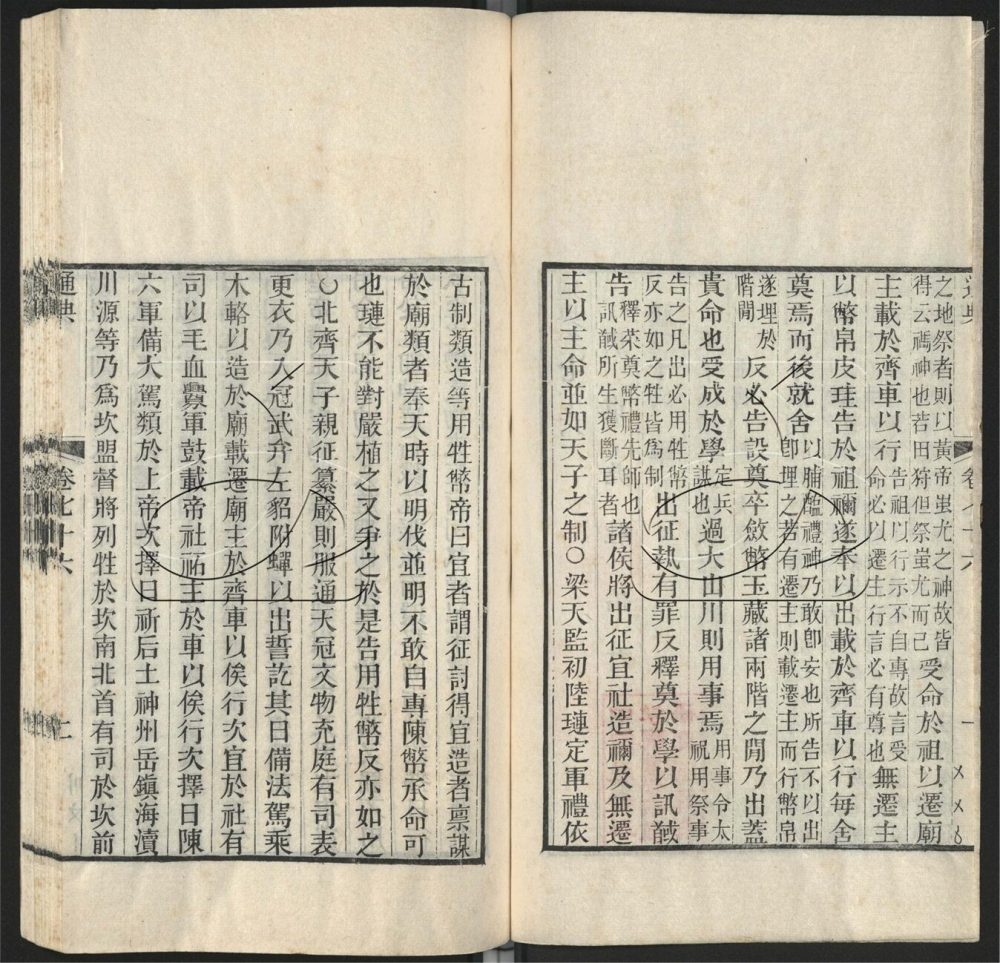 通典
卷七十六
一
之地祭者則以黃帝蚩尤之神故皆
得云禡神也若田狩但祭蚩尤而已
受命於祖以遷廟
主載於齊車以行
告祖以行示不自專故言受
命必以遷生行言必有尊也
無遷主
以幣帛皮珪告於祖禰遂奉以出載於齊車以行每舍
奠焉而後就舍
以脯醢禮神乃敢卽安也所告不以出
卽埋之若有遷主則載遷主而行幣帛
遂埋於
階閒
反必告設奠卒斂幣玉藏諸兩階之閒乃出蓋
貴命也受成於學
定兵
謀也
過大山川則用事焉
用事令太
祝用祭事
告之凡出必用牲幣
反亦如之牲皆爲制
出征執有罪反釋奠於學以訊馘
告
釋菜奠幣禮先師也
訊馘所生獲斷耳者
諸侯將出征宜社造禰及無遷
主以主命並如天子之制○梁天監初陸璉定軍禮依
古制類造等用牲幣帝曰宜者謂征討得宜造者稟謀
於廟類者奉天時以明伐並明不敢自專陳幣承命可
也璉不能對嚴植之又爭之於是告用牲幣反亦如之
○北齊天子親征纂嚴則服通天冠文物充庭有司表
更衣乃入冠武弁左貂附蟬以出誓訖其日備法駕乘
木輅以造於廟載遷廟主於齊車以俟行次宜於社有
司以毛血釁軍鼓載帝社祏主於車以俟行次擇日陳
六軍備大駕類於上帝次擇日祈后土神州岳鎮海瀆
川源等乃爲坎盟督將列牲於坎南北首有司於坎前
通典
卷七十六
二